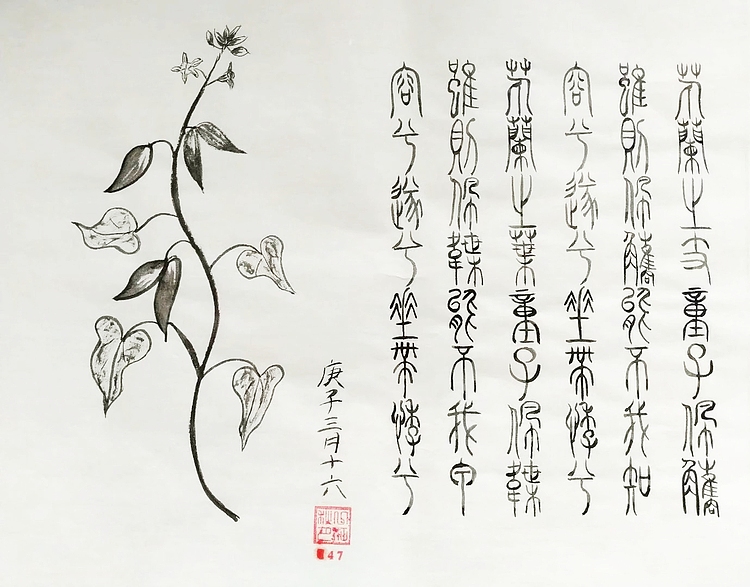 芄蘭之支童子佩觿
雖則佩觿能不我知
容兮遂兮垂帶悸兮
芄蘭之葉童子佩韘
雖則佩韘能不我甲
容兮遂兮垂帶悸兮
庚子三月十六
47